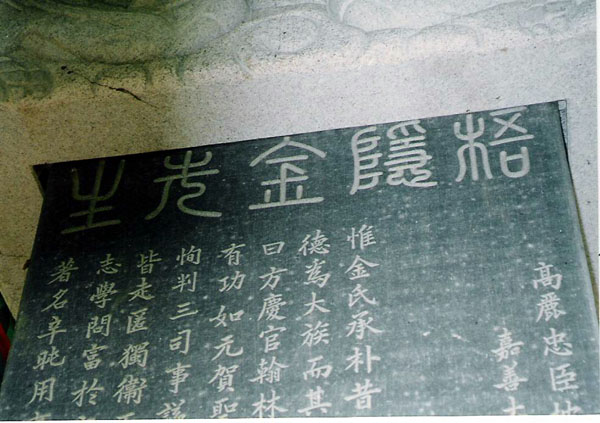 梧隱金先生
高麗忠臣
嘉善大
惟金氏承朴昔
德為大族而其
曰方慶官翰林
有功如元賀聖
恂判三司事
皆走匿獨衛
志學問富於
著名辛旽用